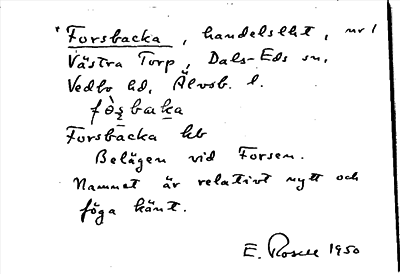 Forsbacka, handelslht, nr 1
Västra Torp, Dals-Eds sn.
Vedbo hd, Älvsb. l.
Forsbacka hb
Belägen vid Forsen.
Namnet är relativt nytt och
föga känt.
E. Rosell 1950